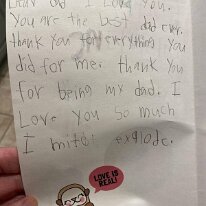 Dear Dad I Love you.
You are the best dad ever.
thank you for everything you
did for me. thank you
for being my dad. I
Love you so much
I mite explode.
LOVE IS
REAL!